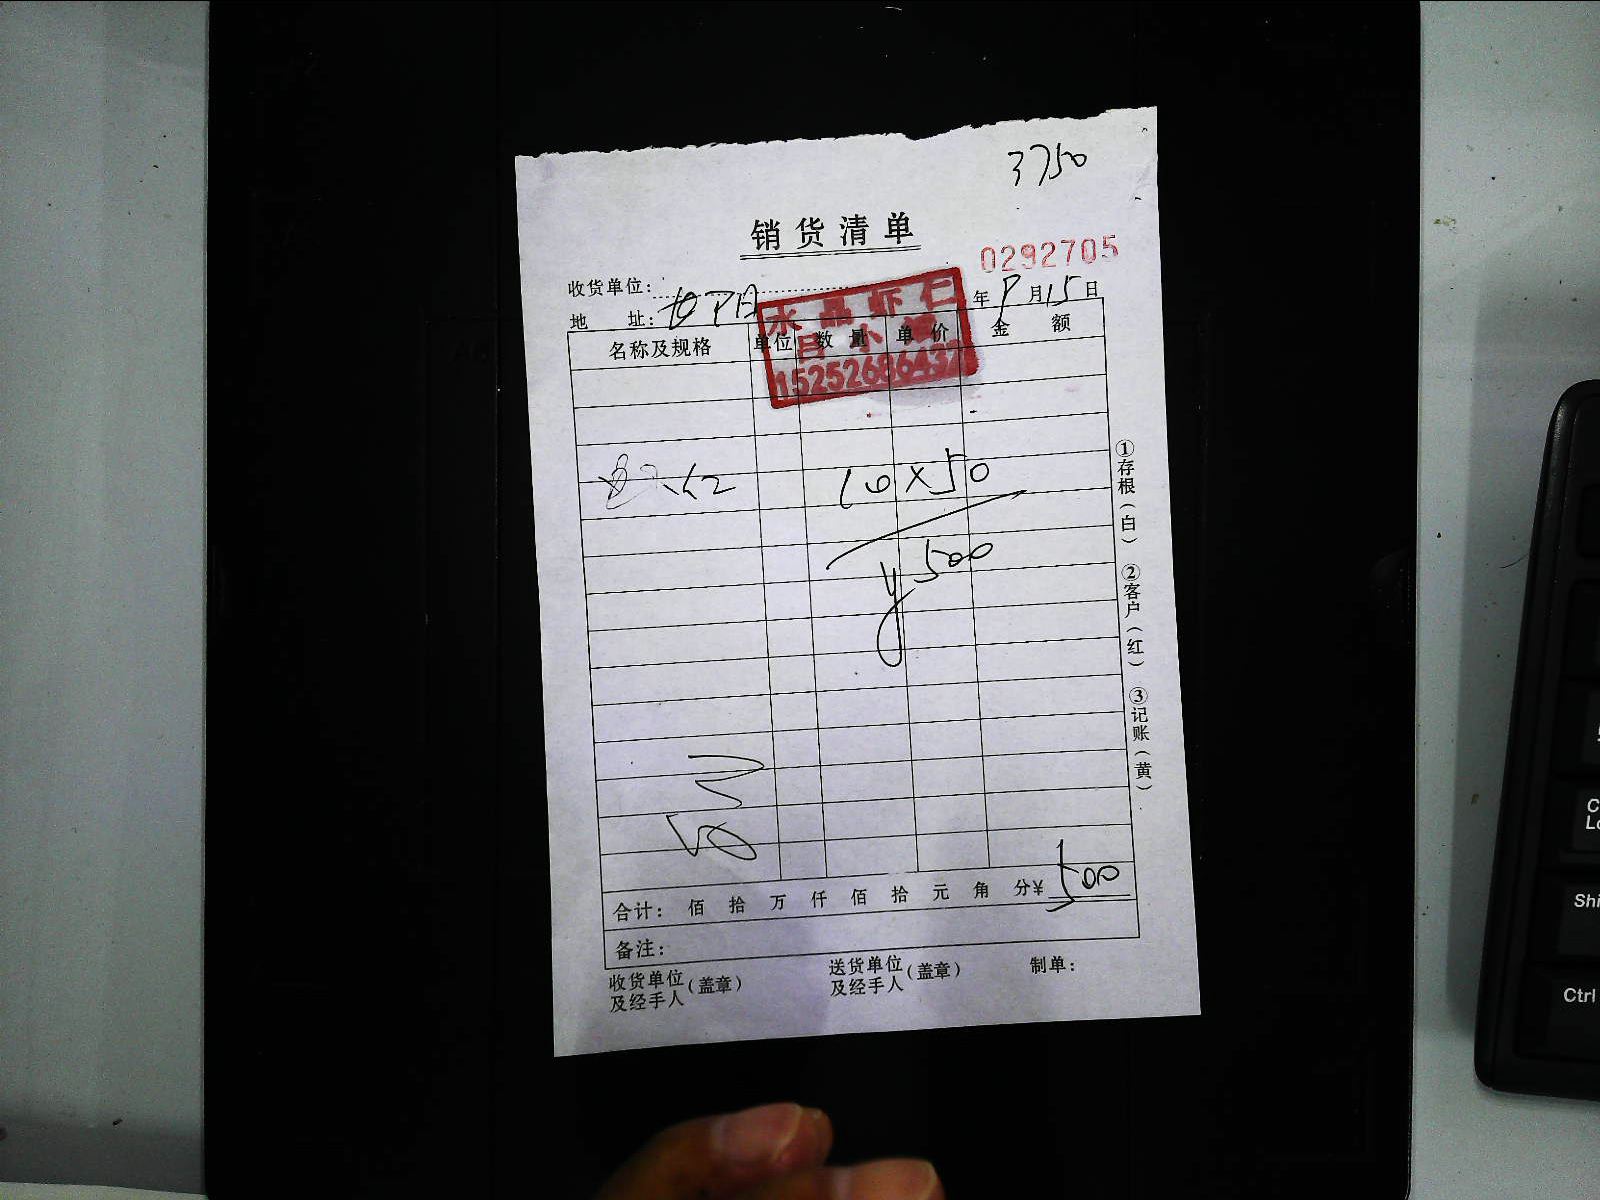 3750
销货清单
0292705
收货单位:
年 9月15日
地 址:
水晶虾仁
吕小
名称及规格 单位 数量 单价 金额
10×50
¥500
合计: 佰 拾 万 仟 佰 拾 元 角 分¥ 500
备注:
收货单位及经手人(盖章) 送货单位及经手人(盖章) 制单:
①存根(白) ②客户(红) ③记账(黄)